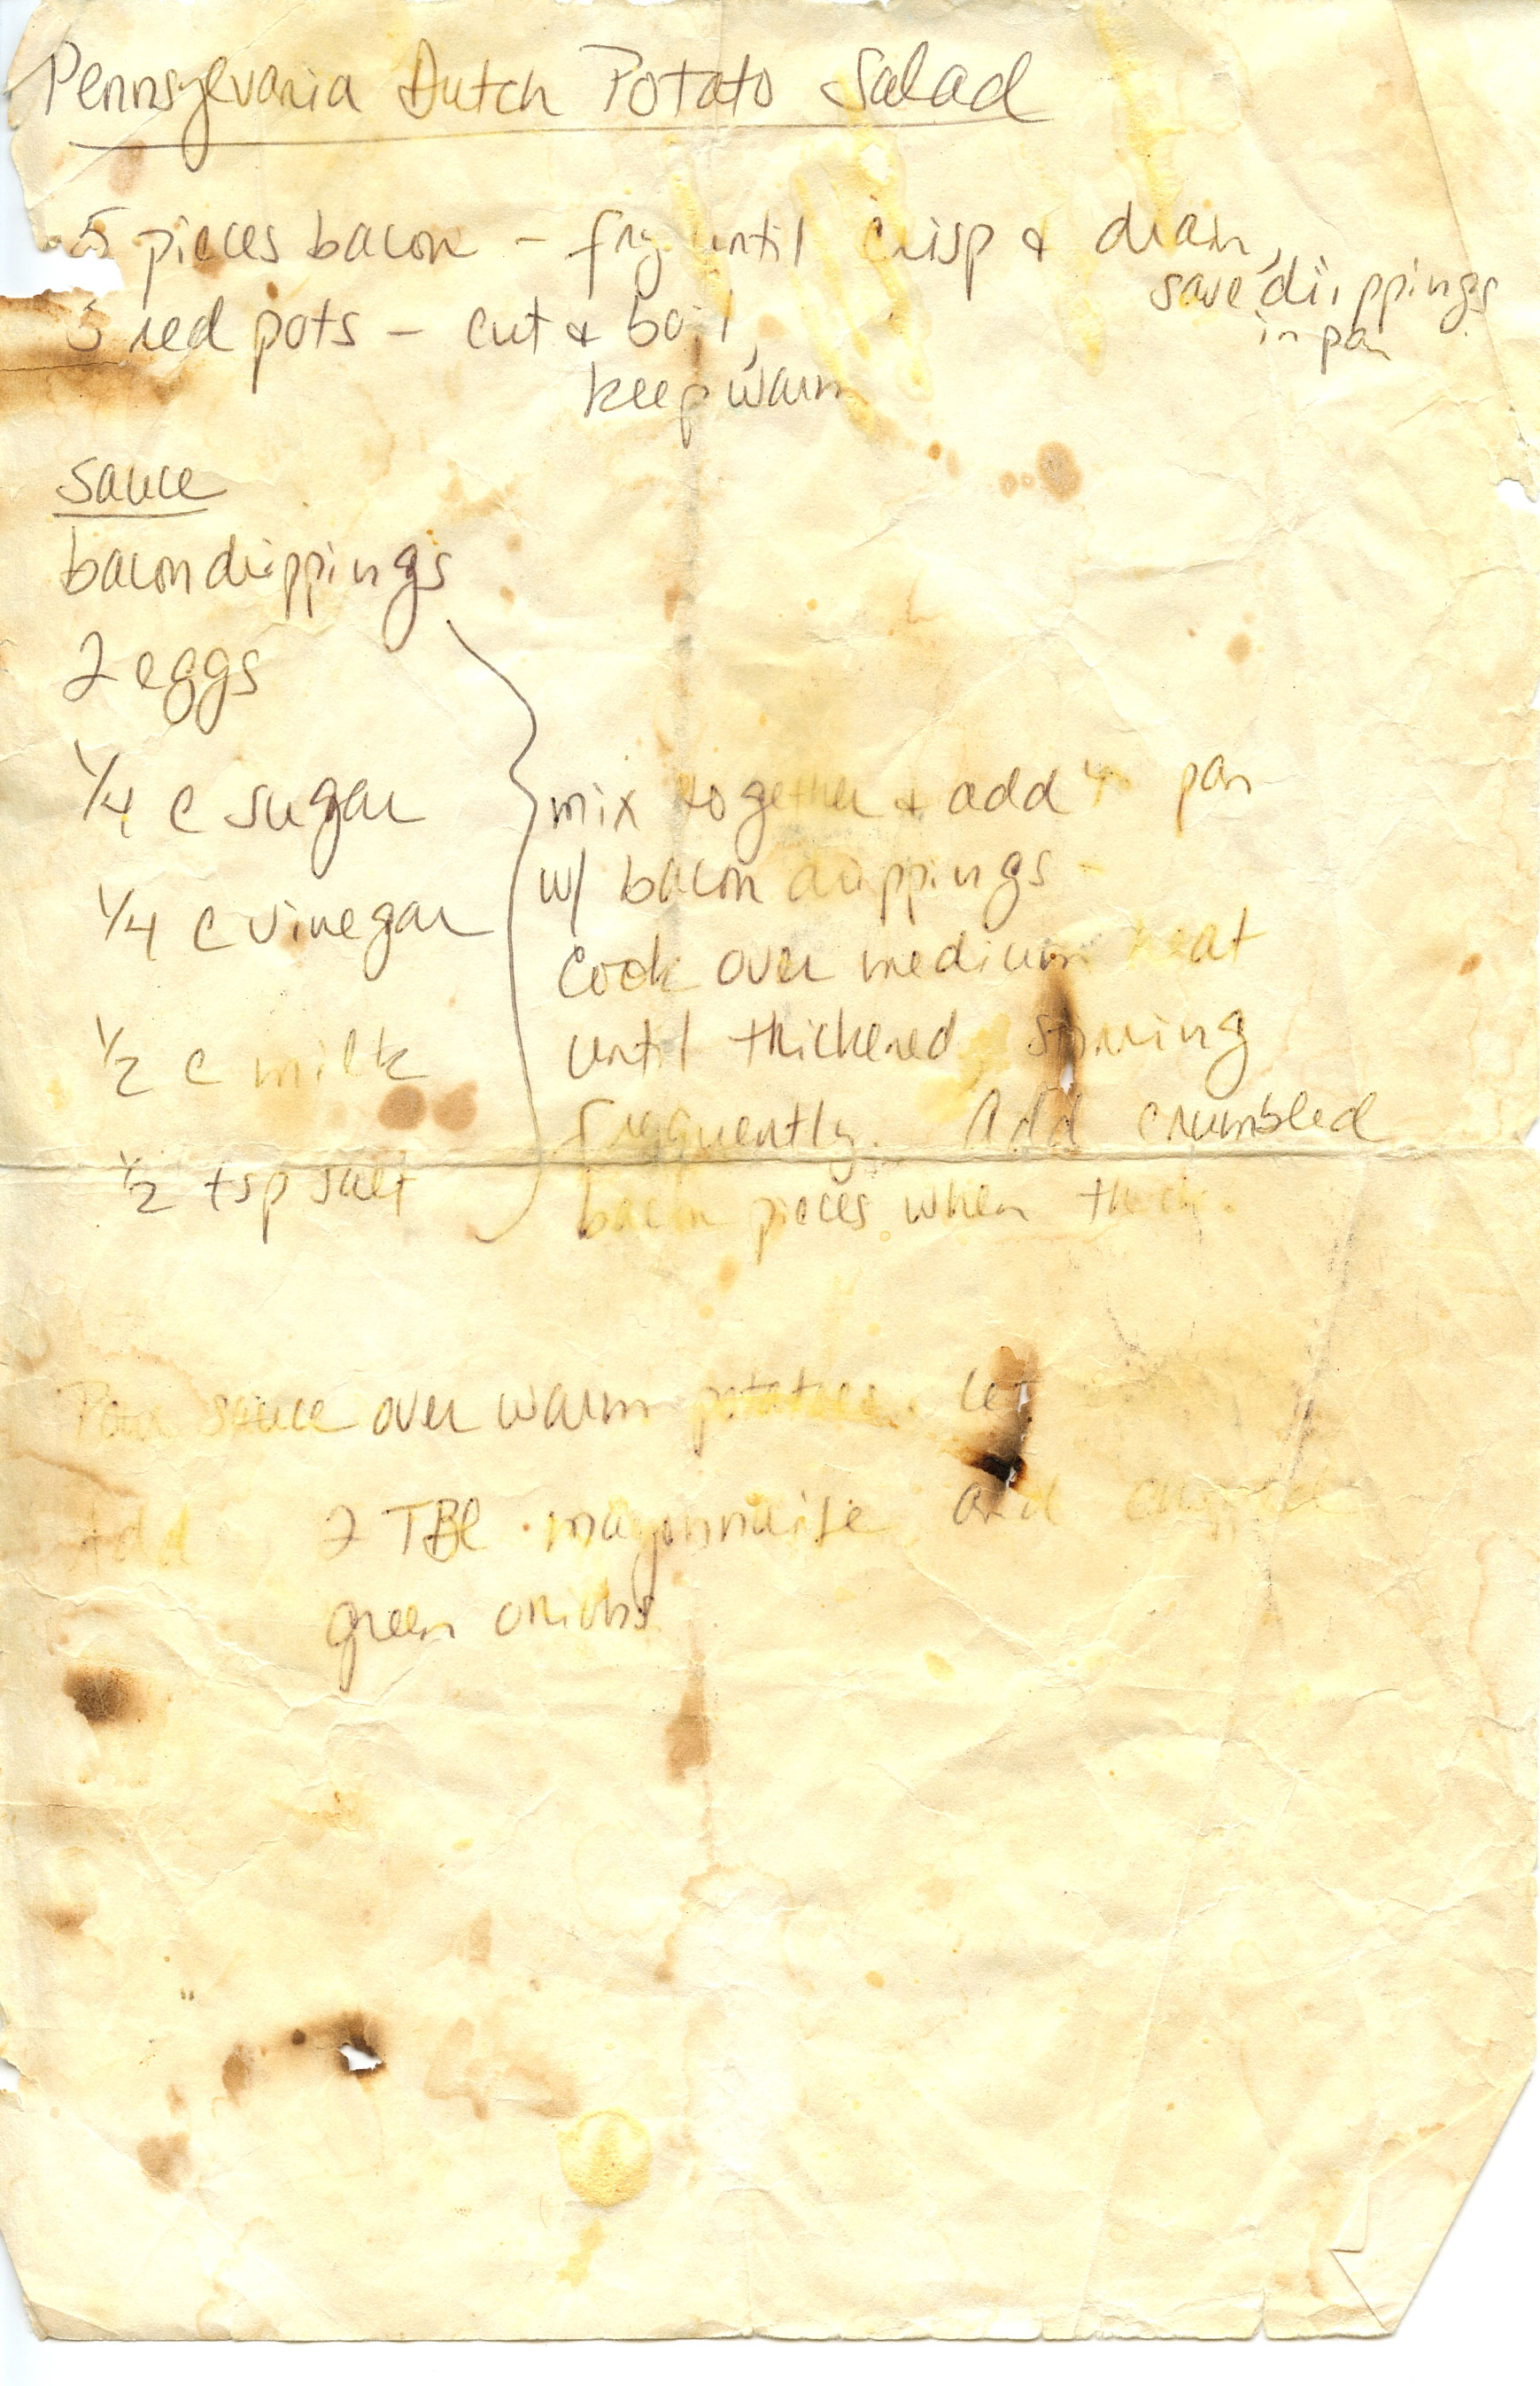 Pennsylvania Dutch Potato Salad
5 pieces bacon - fry until crisp & drain,
save drippings
in pan
5 red pots - cut & boil,
keep warm
Sauce
bacon drippings
2 eggs
1/4 c sugar
1/4 c vinegar
1/2 c milk
1/2 tsp salt
mix together & add to pan
w/ bacon drippings -
Cook over medium heat
until thickened, stirring
frequently. Add crumbled
bacon pieces when thick.
Pour sauce over warm potatoes. Let
Add 2 TBL mayonnaise and
green onions